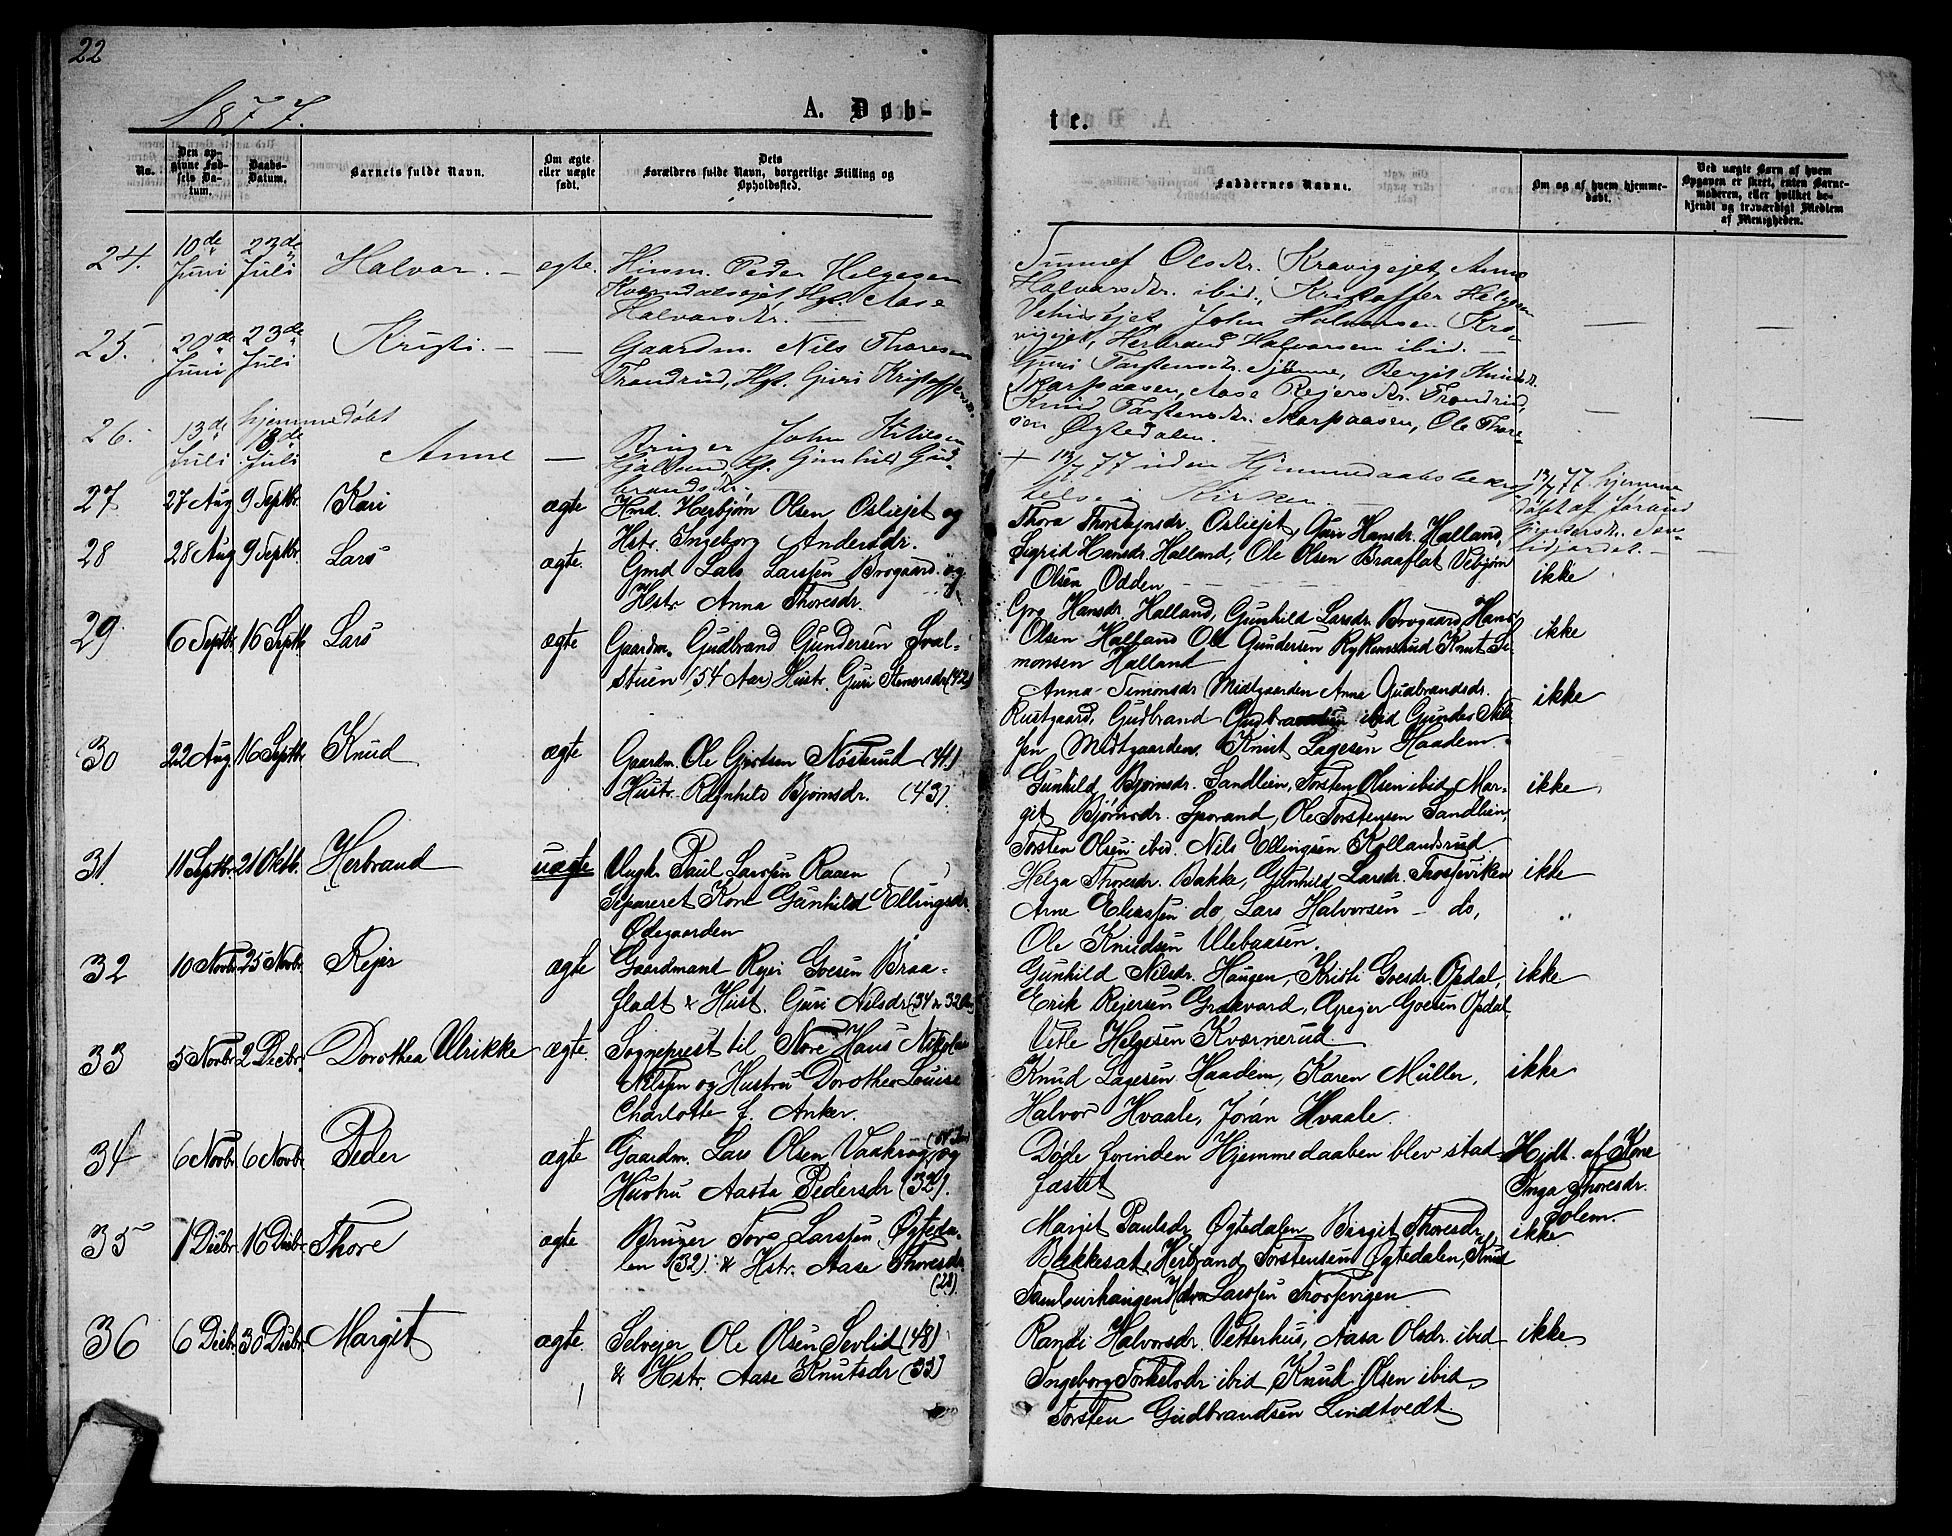 22
1877.
A. Døb-
te.
No.
Den op-
givne Fød-
sels Da-
tum.
Daabs-
Datum.
Barnets fulde Navn.
Om ægte
eller uægte
født.
Dets
Forældres fulde Navn, borgerlige Stilling og
Opholdssted.
Faddernes Navne.
Om og af hvem hjemme-
døbt.
Ved uægte Børn af hvem
Opgaven er skeet, enten Barne-
moderen, eller hvilket be-
kjendt og troværdigt Medlem
af Menigheden.
24.
10de Juni
23de Juli
Halvor. —
egte.
Peder Helgesen
Kværndalsejet, Hst. Aase
Halvorsdtr.
Olsdtr. Kravigejet, Anne
Halvorsdtr. ibid., Kristoffer Helgesen
John Halvorsen Kra-
vigejet, Herbrand Halvorsen ibid. —
25.
Juni
23de Juli
Kristi. —
—
Gaardm. Nils Thoresen
Trondrud, Hst. Guri Kristoffersd.
Guri Torstensdtr. Bergit Knudsdtr.
Skarpaasen, Aase Rejersdtr. Trondrud,
Knud Skarpaasen, Ole Thore-
sen Øgtedalen.
26.
13de Juli
hjemmedøbt
13de Juli
Anne
—
Bruger John Kittilsen
Hst. Gunhild Gud-
brandsdtr.
+ 13/7 77 uden Hjemmedaabsbekræf-
telse i Kirken
13/7 77 hjemme
døbt af Jørand
27
27 Aug
9 Septbr.
Kari
ægte
Hmd. Herbjørn Olsen Osliejet og
Hstr. Ingeborg Andersdr.
Thora Thorstejnsdr. Osliejet, Guri Hansdr. Halland,
Sigrid Hansdr. Halland, Ole Olsen Braaflat Vebjørn
Olsen Odden
ikke
28
28 Aug
9 Septbr.
Lars
ægte.
Gmd Lars Larssen Brogaard og
Hstr Anna Thoresdr.
Gro Hansdr. Halland, Gunhild Larsdr. Brogaard, Hans
Olsen Halland Ole Gundersen Rykensrud Knut Si-
monsen Halland
ikke
29
6 Septbr.
16 Septb.
Lars
ægte
Gaardm. Gudbrand Gundersen Sval-
stuen (54 Aar) Hustr. Guri Stenersdr (42)
Anna Simonsdr Midtgaarden Anna Gudbrandsdr.
Rustgaard, Gudbrand Gudbrandsen ibid Gunder Nil-
sen Midtgaarden. Knut Lagesen Haadem
ikke
30
22 Aug.
16 Septbr.
Knud
ægte
Gaardm. Ole Nøsterud (41)
Hustr. Ragnhild Bjørnsdr. (43).
Gunhild Bjørnsdr. Sandlien, Torsten Olsen ibid Mar-
git Bjørnsdr. Sporand, Ole Torstensen Sandlien,
Torsten Olsen ibid. Nils Ellingsen Kollandsrud
ikke
31.
11 Septbr.
21 Oktb.
Herbrand
uægte
Ungk. Paul Larssen Raaen
Separeret Kone Gunhild Ellingsdr.
Ødegaarden
Helga Thoresdr. Bakke, Gunhild Larsdr. Trosseviken
Arne Eliassen do, Lars Halvorsen — do,
Ole Knudsen Ulebaasen.
ikke
"
32
10 Novbr.
25 Novbr.
Rejer
ægte
Gaardmand Rejer Goesen Braa-
fladt & Hust. Guri Nilsdr (34 & 32 Aar)
Gunhild Nilsdr. Haugen, Kristi Goesdr. Opdal,
Erik Rejersen Grøkvard, Greger Goesen Opdal
Vetle Helgesen Kværnerud.
ikke
33
5 Novbr.
2 Decbr.
Dorothea Ulrikke
ægte
Sogneprest til Nore Hans Nikolai
Nilsen og Hustru Dorothea Louise
Charlotte f. Anker.
Knud Lagesen Haadem, Karen Müller,
Halvor Hvaale, Jørán Hvaale.
ikke
34
6 Novbr.
6 Novbr.
Peder
ægte
Gaardm. Lars Olsen og
Hustru Aasta Pedersdr (32).
Døde forinden Hjemmedaaben blev stad-
fæstet
Hjdt. af Kone
Inga Thoresdr.
Solem.
35
1 Decbr.
16 Decbr.
Thore
ægte
Bruger Tore Larssen Øgteda-
len (32) & Hstr. Aase Thoresdr.
(28)
Margit Paulsdr Øgtedalen Birgit Thoresdr.
Bekkesat, Herbrand Torstensrud Øgtedalen, Knud
Tamburhaugen, Halvor Larssen Trossevigen
ikke
36
6 Decbr.
30 Decbr.
Margit
ægte.
Selvejer Ole Olsen Sevlid (48)
& Hstr. Aase Knutsdr (33)
Randi Halvorsdr. Vetterhus, Aasa Olsdr. ibid
Ingeborg Torkelsdr ibid, Knud Olsen ibid.
Torsten Gudbrandsen Lindtvedt.
ikke.